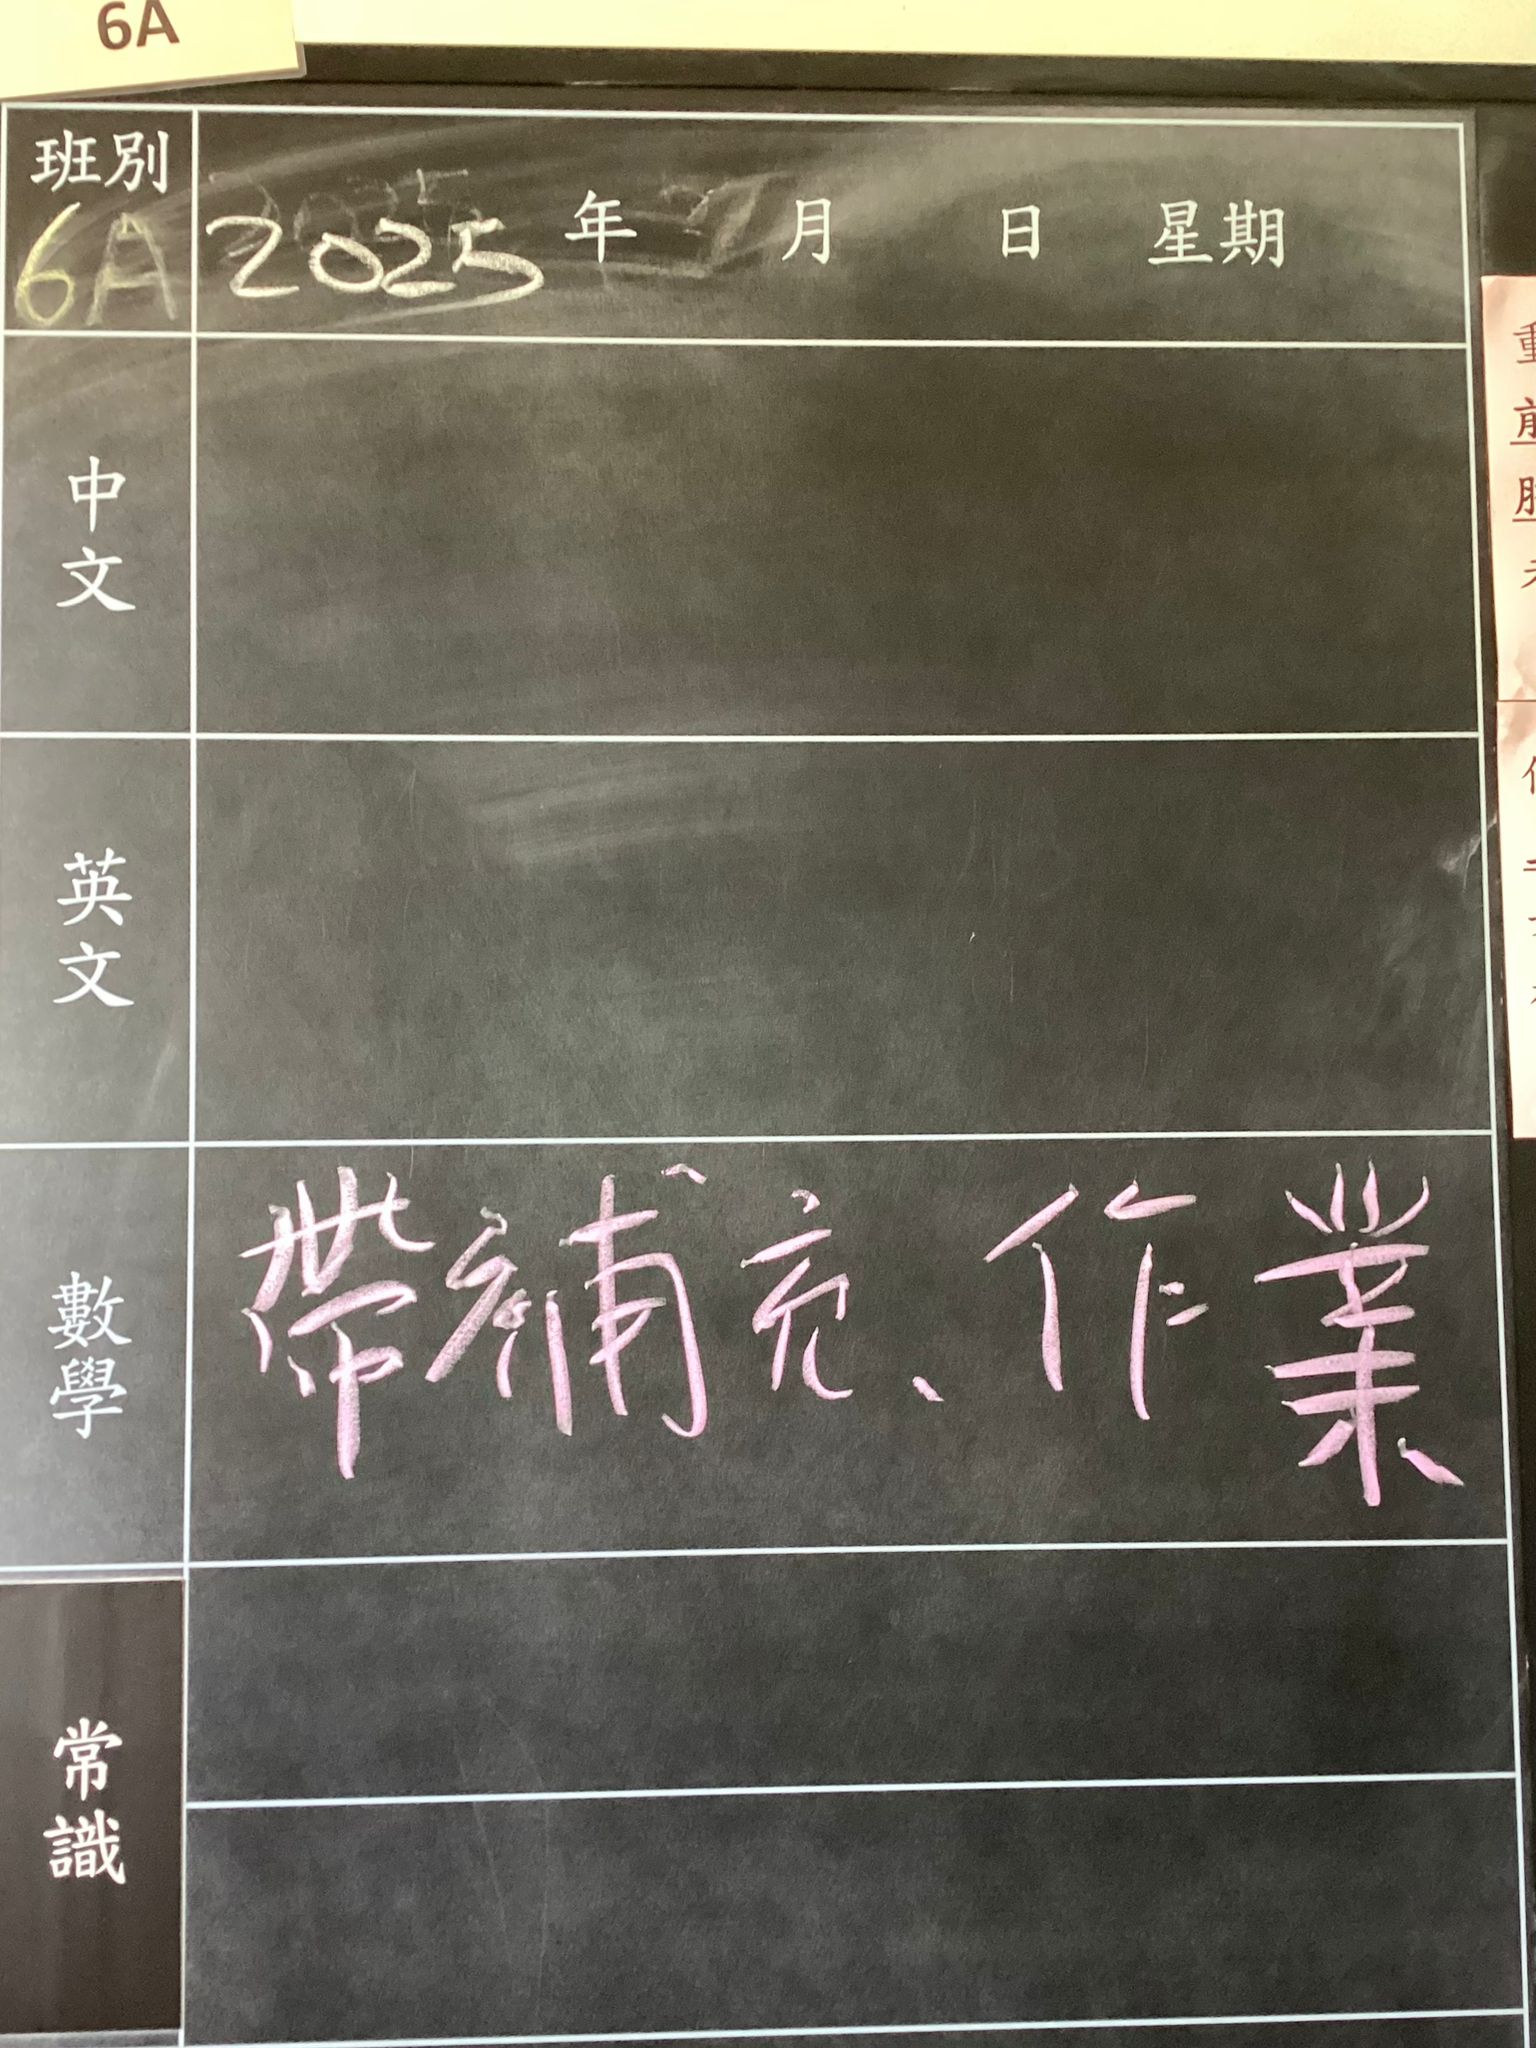 6A
班別
6A
2025 年 月 日 星期
中文
英文
數學
帶補充、作業
常識